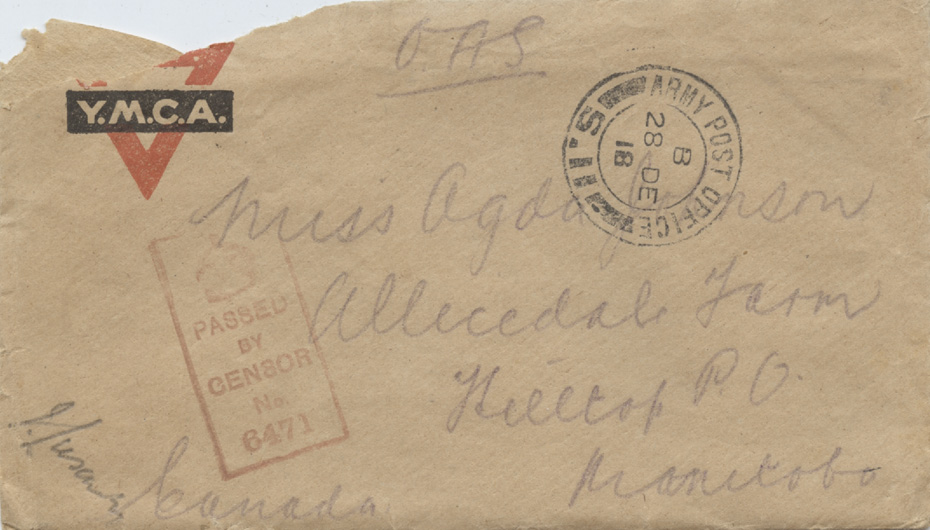 O A S
Y.M.C.A.
ARMY POST OFFICE
S.11
B
28 DE
18
Miss Ogda Jonson
Allecedale Farm
Hilltop P.O.
Manitoba
Canada
PASSED
BY
CENSOR
No.
6471